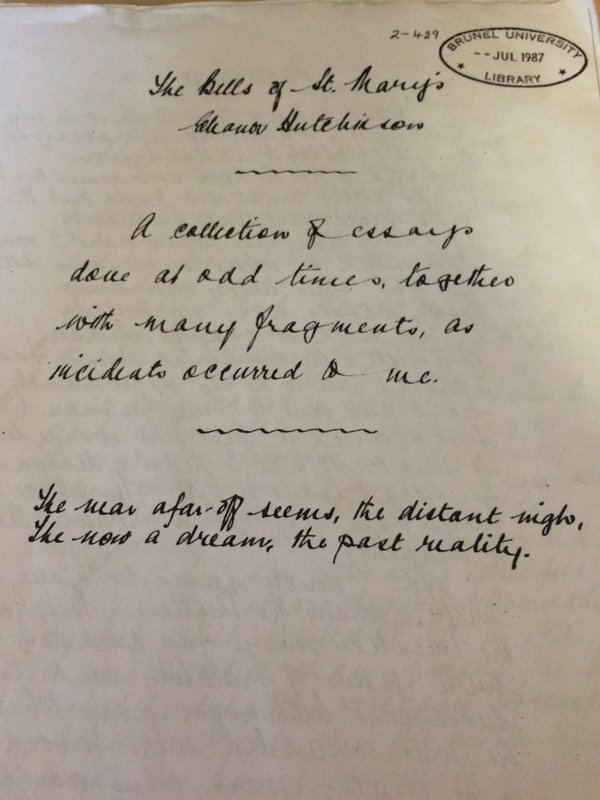 2-429
BRUNEL UNIVERSITY
--JUL 1987
LIBRARY
The Bells of St. Mary's
Eleanor Hutchinson
A collection of essays
done at odd times, together
with many fragments, as
incidents occurred to me.
The near afar-off seems, the distant nigh,
The now a dream, the past reality.